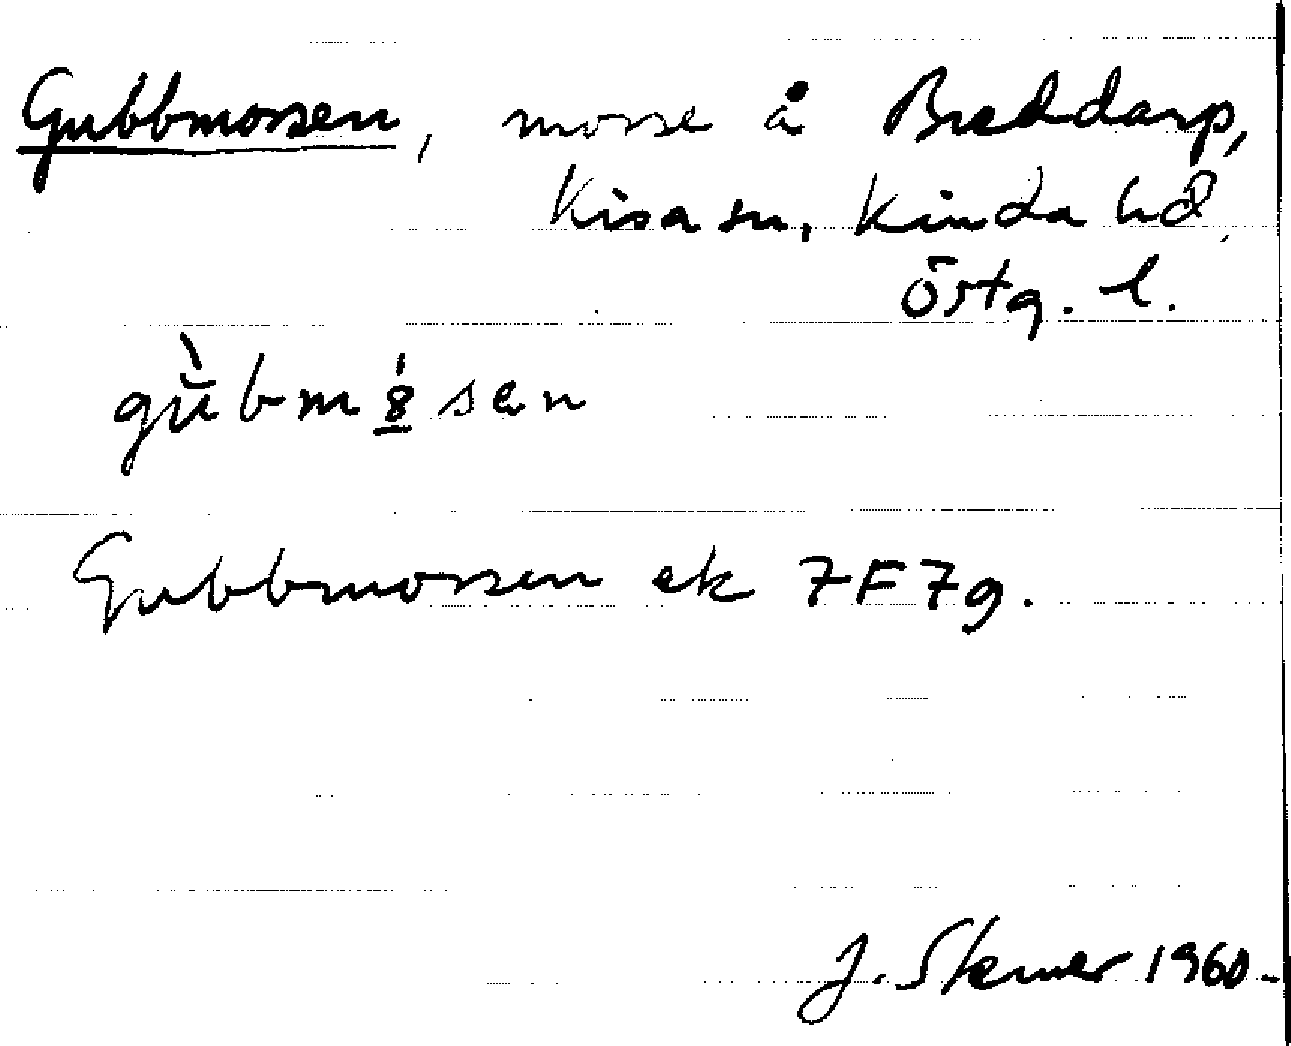 Gubbmossen, mosse å Breddarp,
Kisa sn, Kinda hd,
Östg. l.
gùbm8́sen
Gubbmossen ek 7F7g.
J. 1960